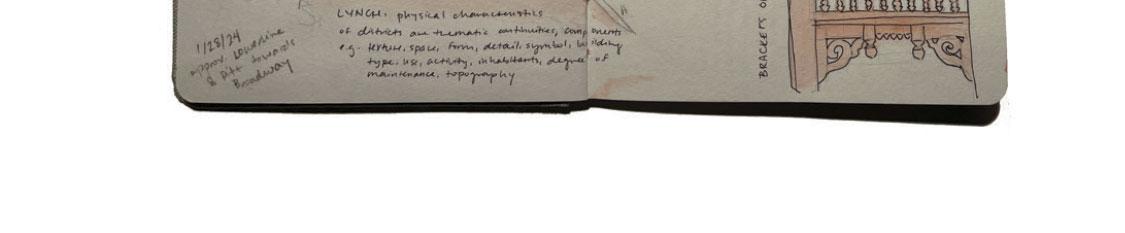 1/28/24
approx. Lonsdale
& Pitt towards
Broadway
LYNCH: physical characteristics
of districts are thematic continuities, components
e.g. texture, space, form, detail, symbol, building
type, use, activity, inhabitants, degree of
maintenance, topography
BRACKETS O